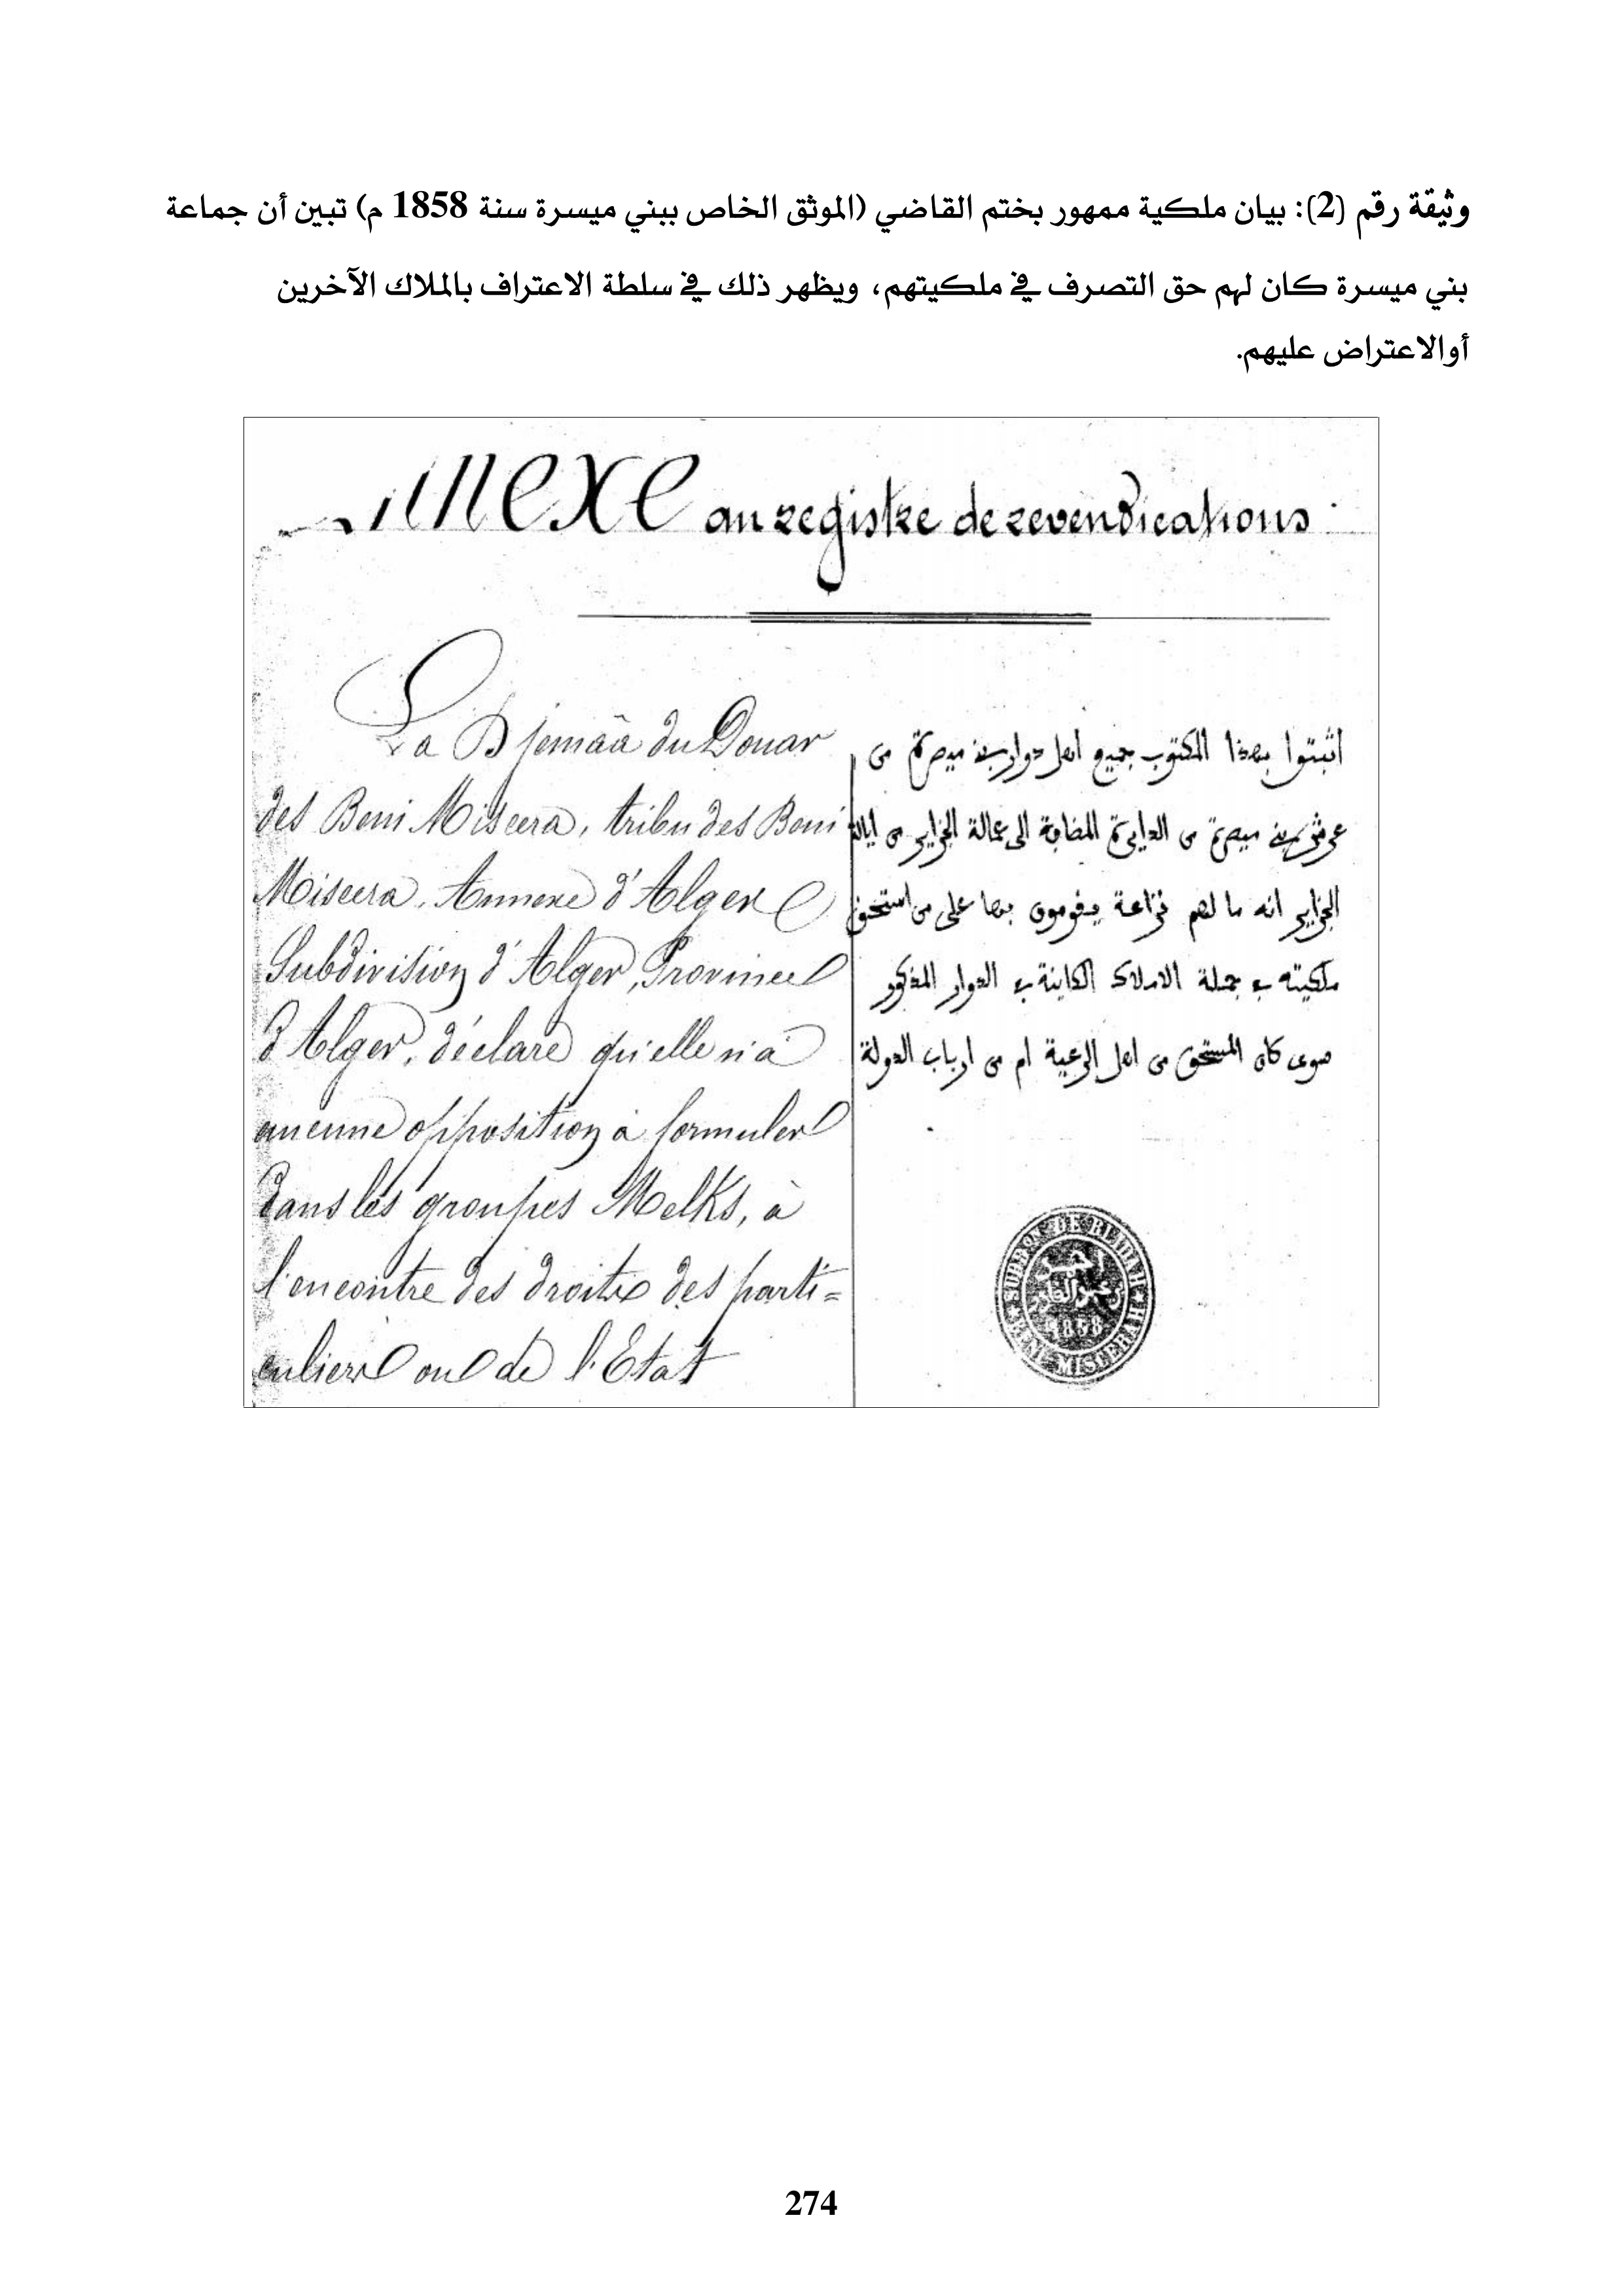 وثيقة رقم (2): بيان ملكية ممهور بختم القاضي (الموثق الخاص ببني ميسرة سنة 1858 م) تبين أن جماعة
بني ميسرة كان لهم حق التصرف في ملكيتهم، ويظهر ذلك في سلطة الاعتراف بالملاك الآخرين
أوالاعتراض عليهم.
Annexe au registre de revendications
La Djemâa du Douar
des Beni Miscera, tribu des Beni
Miscera, Annexe d'Alger
Subdivision d'Alger, Province
d'Alger, déclare qu'elle n'a
aucune opposition à formuler
dans les groupes Melks, à
l'encontre des droits des parti=
culiers ou de l'Etat
اثبتوا بهذا المكتوب جميع اهل دوار بنے ميصرة من
عرش بنے ميصرة من الدايرة المضافة الى عمالة الجزاير من ايالة
الجزاير انه ما لهم نزاعة يقومون بها على من استحق
ملكيته في جملة الاملاك الكاينة في الدوار المذكور
سوى كان المستحق من اهل الرعية ام من ارباب الدولة
SUBD.ON DE BLIDAH
1858
BENI MISSERAH
274